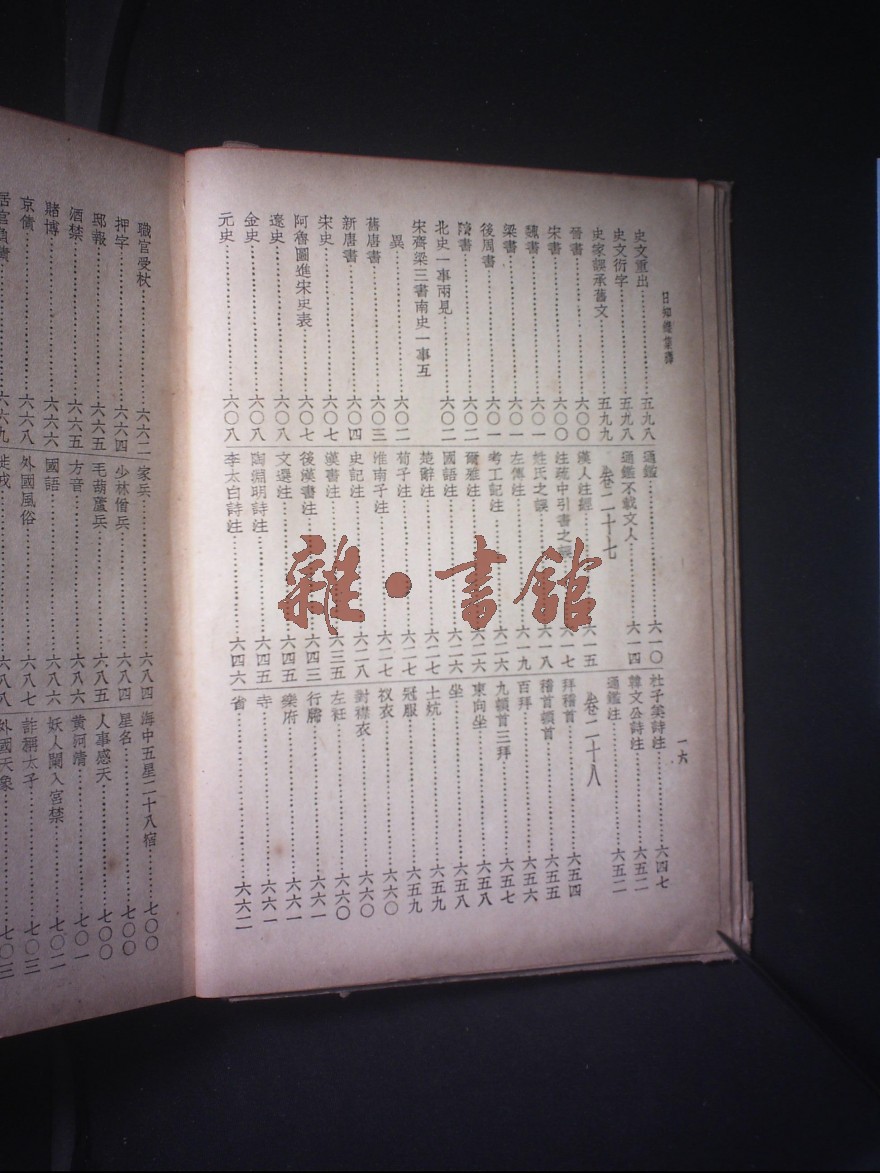 日知錄集釋
一六
史文重出……五九八
史文衍字……五九八
史家誤承舊文……五九九
晉書……六〇〇
宋書……六〇〇
魏書……六〇一
梁書……六〇一
後周書……六〇一
隋書……六〇二
北史一事兩見……六〇二
宋齊梁三書南史一事互
異……六〇二
舊唐書……六〇三
新唐書……六〇四
宋史……六〇七
阿魯圖進宋史表……六〇七
遼史……六〇八
金史……六〇八
元史……六〇八
通鑑……六一〇
通鑑不載文人……六一四
卷二十七
漢人注經……六一五
注疏中引書之誤……六一七
姓氏之誤……六一八
左傳注……六一九
考工記注……六二六
爾雅注……六二六
國語注……六二六
楚辭注……六二七
荀子注……六二七
淮南子注……六二七
史記注……六二八
漢書注……六三五
後漢書注……六四三
文選注……六四五
陶淵明詩注……六四五
李太白詩注……六四六
杜子美詩注……六四七
韓文公詩注……六五二
通鑑注……六五二
卷二十八
拜稽首……六五四
稽首頓首……六五五
百拜……六五六
九頓首三拜……六五七
東向坐……六五八
坐……六五八
土炕……六五九
冠服……六五九
衩衣……六六〇
對襟衣……六六〇
左衽……六六〇
行縢……六六一
樂府……六六一
寺……六六一
省……六六二
職官受杖……六六二
押字……六六四
邸報……六六五
酒禁……六六五
賭博……六六六
京債……六六八
居官負債……六六九
家兵……六八四
少林僧兵……六八四
毛葫蘆兵……六八五
方音……六八五
國語……六八六
外國風俗……六八七
徙戎……六八八
海中五星二十八宿……七〇〇
星名……七〇〇
人事感天……七〇〇
黃河清……七〇一
妖人闌入宮禁……七〇二
詐稱太子……七〇三
外國天象……七〇三
雜·書館